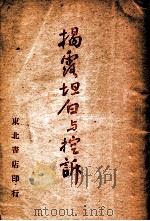 揭露坦白与控訴
東北書店印行